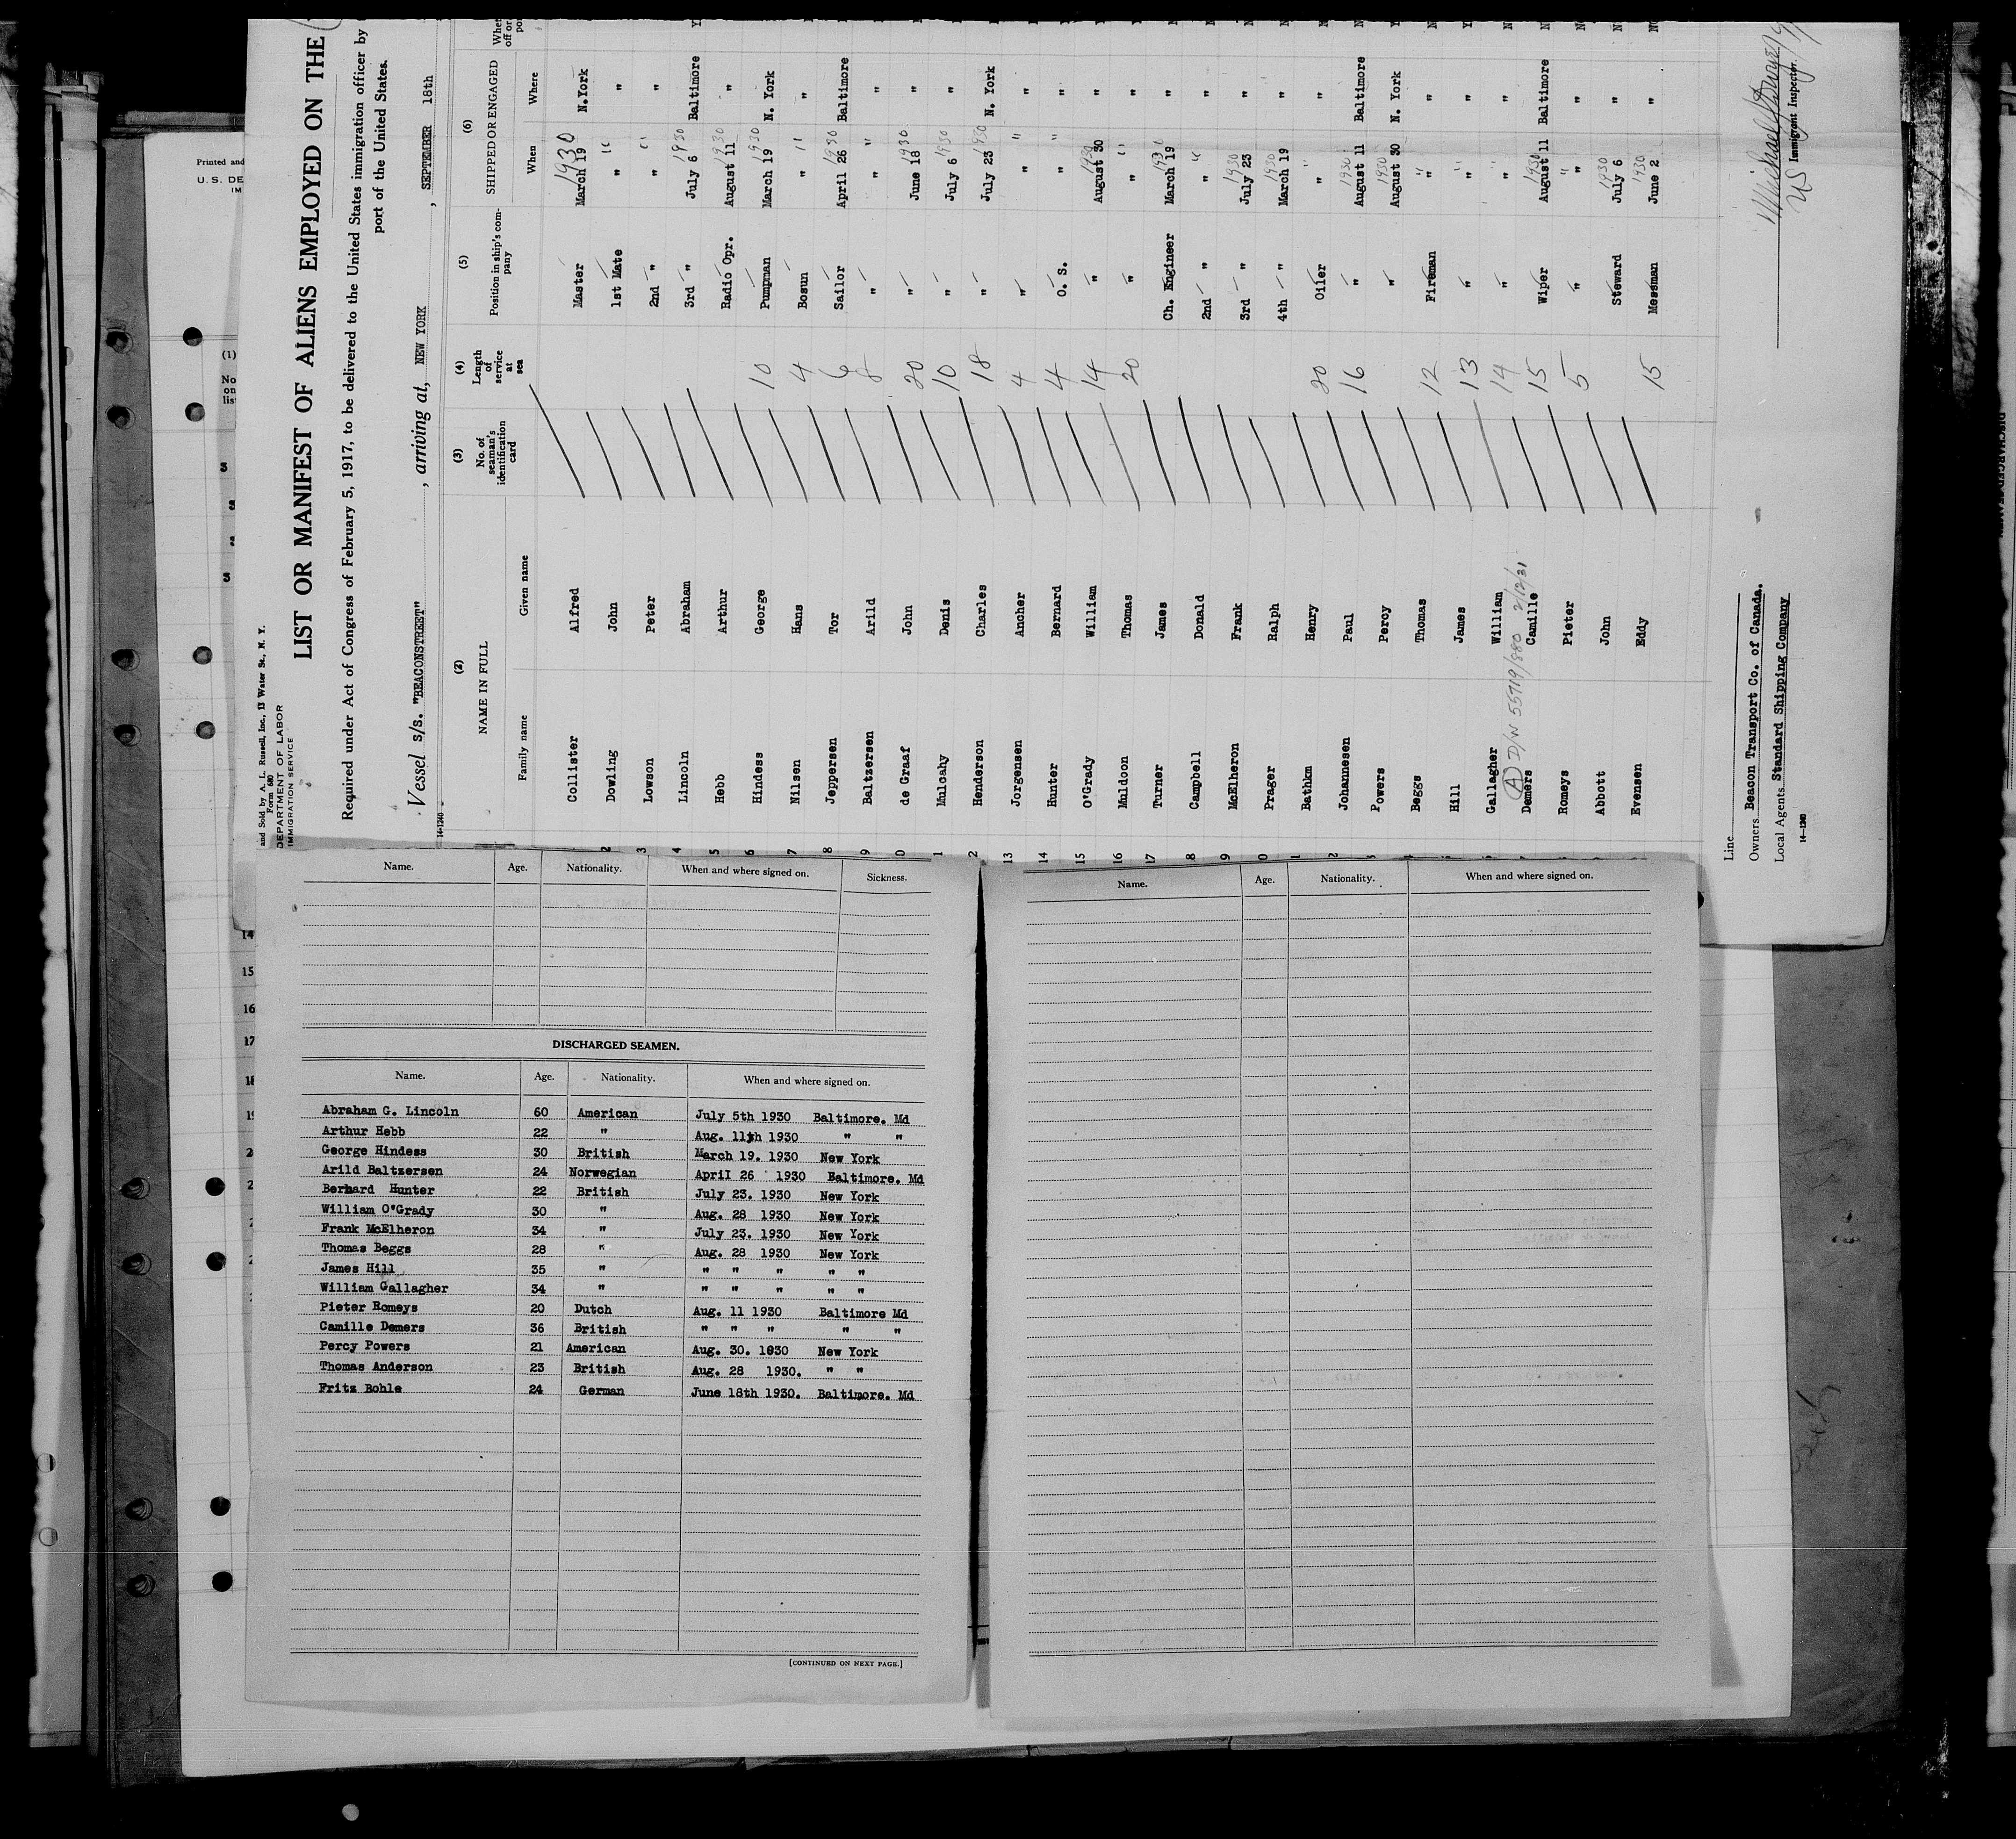 and Sold by A. L. Russell, Inc., 13 Water St., N. Y.
Form 680
DEPARTMENT OF LABOR
IMMIGRATION SERVICE
LIST OR MANIFEST OF ALIENS EMPLOYED ON THE
Required under Act of Congress of February 5, 1917, to be delivered to the United States immigration officer by
port of the United States.
Vessel s/s. "BEACONSTREET", arriving at, NEW YORK, SEPTEMBER 18th
14-1240
(2) (3) (4) (5) (6)
NAME IN FULL No. of seaman's identification card Length of service at sea Position in ship's company SHIPPED OR ENGAGED
Family name Given name When Where
Collister Alfred Master 1930 March 19 N.York
2 Dowling John 1st Mate " " "
3 Lowson Peter 2nd " " " "
4 Lincoln Abraham 3rd " 1930 July 6 Baltimore
5 Hebb Arthur Radio Opr. 1930 August 11 "
6 Hindess George 10 Pumpman 1930 March 19 N. York
7 Nilsen Hans 4 Bosun " " "
8 Jeppersen Tor 6 Sailor 1930 April 26 Baltimore
9 Baltzersen Arild 8 " " " "
0 de Graaf John 20 " 1930 June 18 "
1 Mulcahy Denis 10 " 1930 July 6 "
2 Henderson Charles 18 " 1930 July 23 N. York
13 Jorgensen Ancher 4 " " " "
14 Hunter Bernard 4 O. S. " " "
15 O'Grady William 14 " 1930 August 30 "
16 Muldoon Thomas 20 " " " "
17 Turner James Ch. Engineer 1930 March 19 "
8 Campbell Donald 2nd " " " "
9 McElheron Frank 3rd " 1930 July 23 "
0 Prager Ralph 4th " 1930 March 19 "
1 Bathkm Henry 20 Oiler " " "
2 Johannesen Paul 16 " 1930 August 11 Baltimore
3 Powers Percy " 1930 August 30 N. York
Beggs Thomas 12 Fireman " " "
Hill James 13 " " " "
Gallagher William 14 " " " "
(A) D/W 55719/880 2/12/31
Demers Camille 15 Wiper 1930 August 11 Baltimore
Romeys Pieter 5 " " " "
Abbott John Steward 1930 July 6 "
Evensen Eddy 15 Messman 1930 June 2 "
Line
Owners Beacon Transport Co. of Canada.
Local Agents Standard Shipping Company
14-1240
US Immigrant Inspector.
Printed and
U. S. DE
IM
(1)
No
on
lis
14
15
16
17
18
Name. Age. Nationality. When and where signed on. Sickness.
DISCHARGED SEAMEN.
Name. Age. Nationality. When and where signed on.
Abraham G. Lincoln 60 American July 5th 1930 Baltimore. Md
Arthur Hebb 22 " Aug. 11th 1930 " "
George Hindess 30 British March 19. 1930 New York
Arild Baltzersen 24 Norwegian April 26 1930 Baltimore. Md
Berhard Hunter 22 British July 23. 1930 New York
William O'Grady 30 " Aug. 28 1930 New York
Frank McElheron 34 " July 23. 1930 New York
Thomas Beggs 28 " Aug. 28 1930 New York
James Hill 35 " " " " " "
William Gallagher 34 " " " " " "
Pieter Romeys 20 Dutch Aug. 11 1930 Baltimore Md
Camille Demers 36 British " " " " "
Percy Powers 21 American Aug. 30. 1930 New York
Thomas Anderson 23 British Aug. 28 1930. " "
Fritz Bohle 24 German June 18th 1930. Baltimore. Md
[CONTINUED ON NEXT PAGE.]
Name. Age. Nationality. When and where signed on.